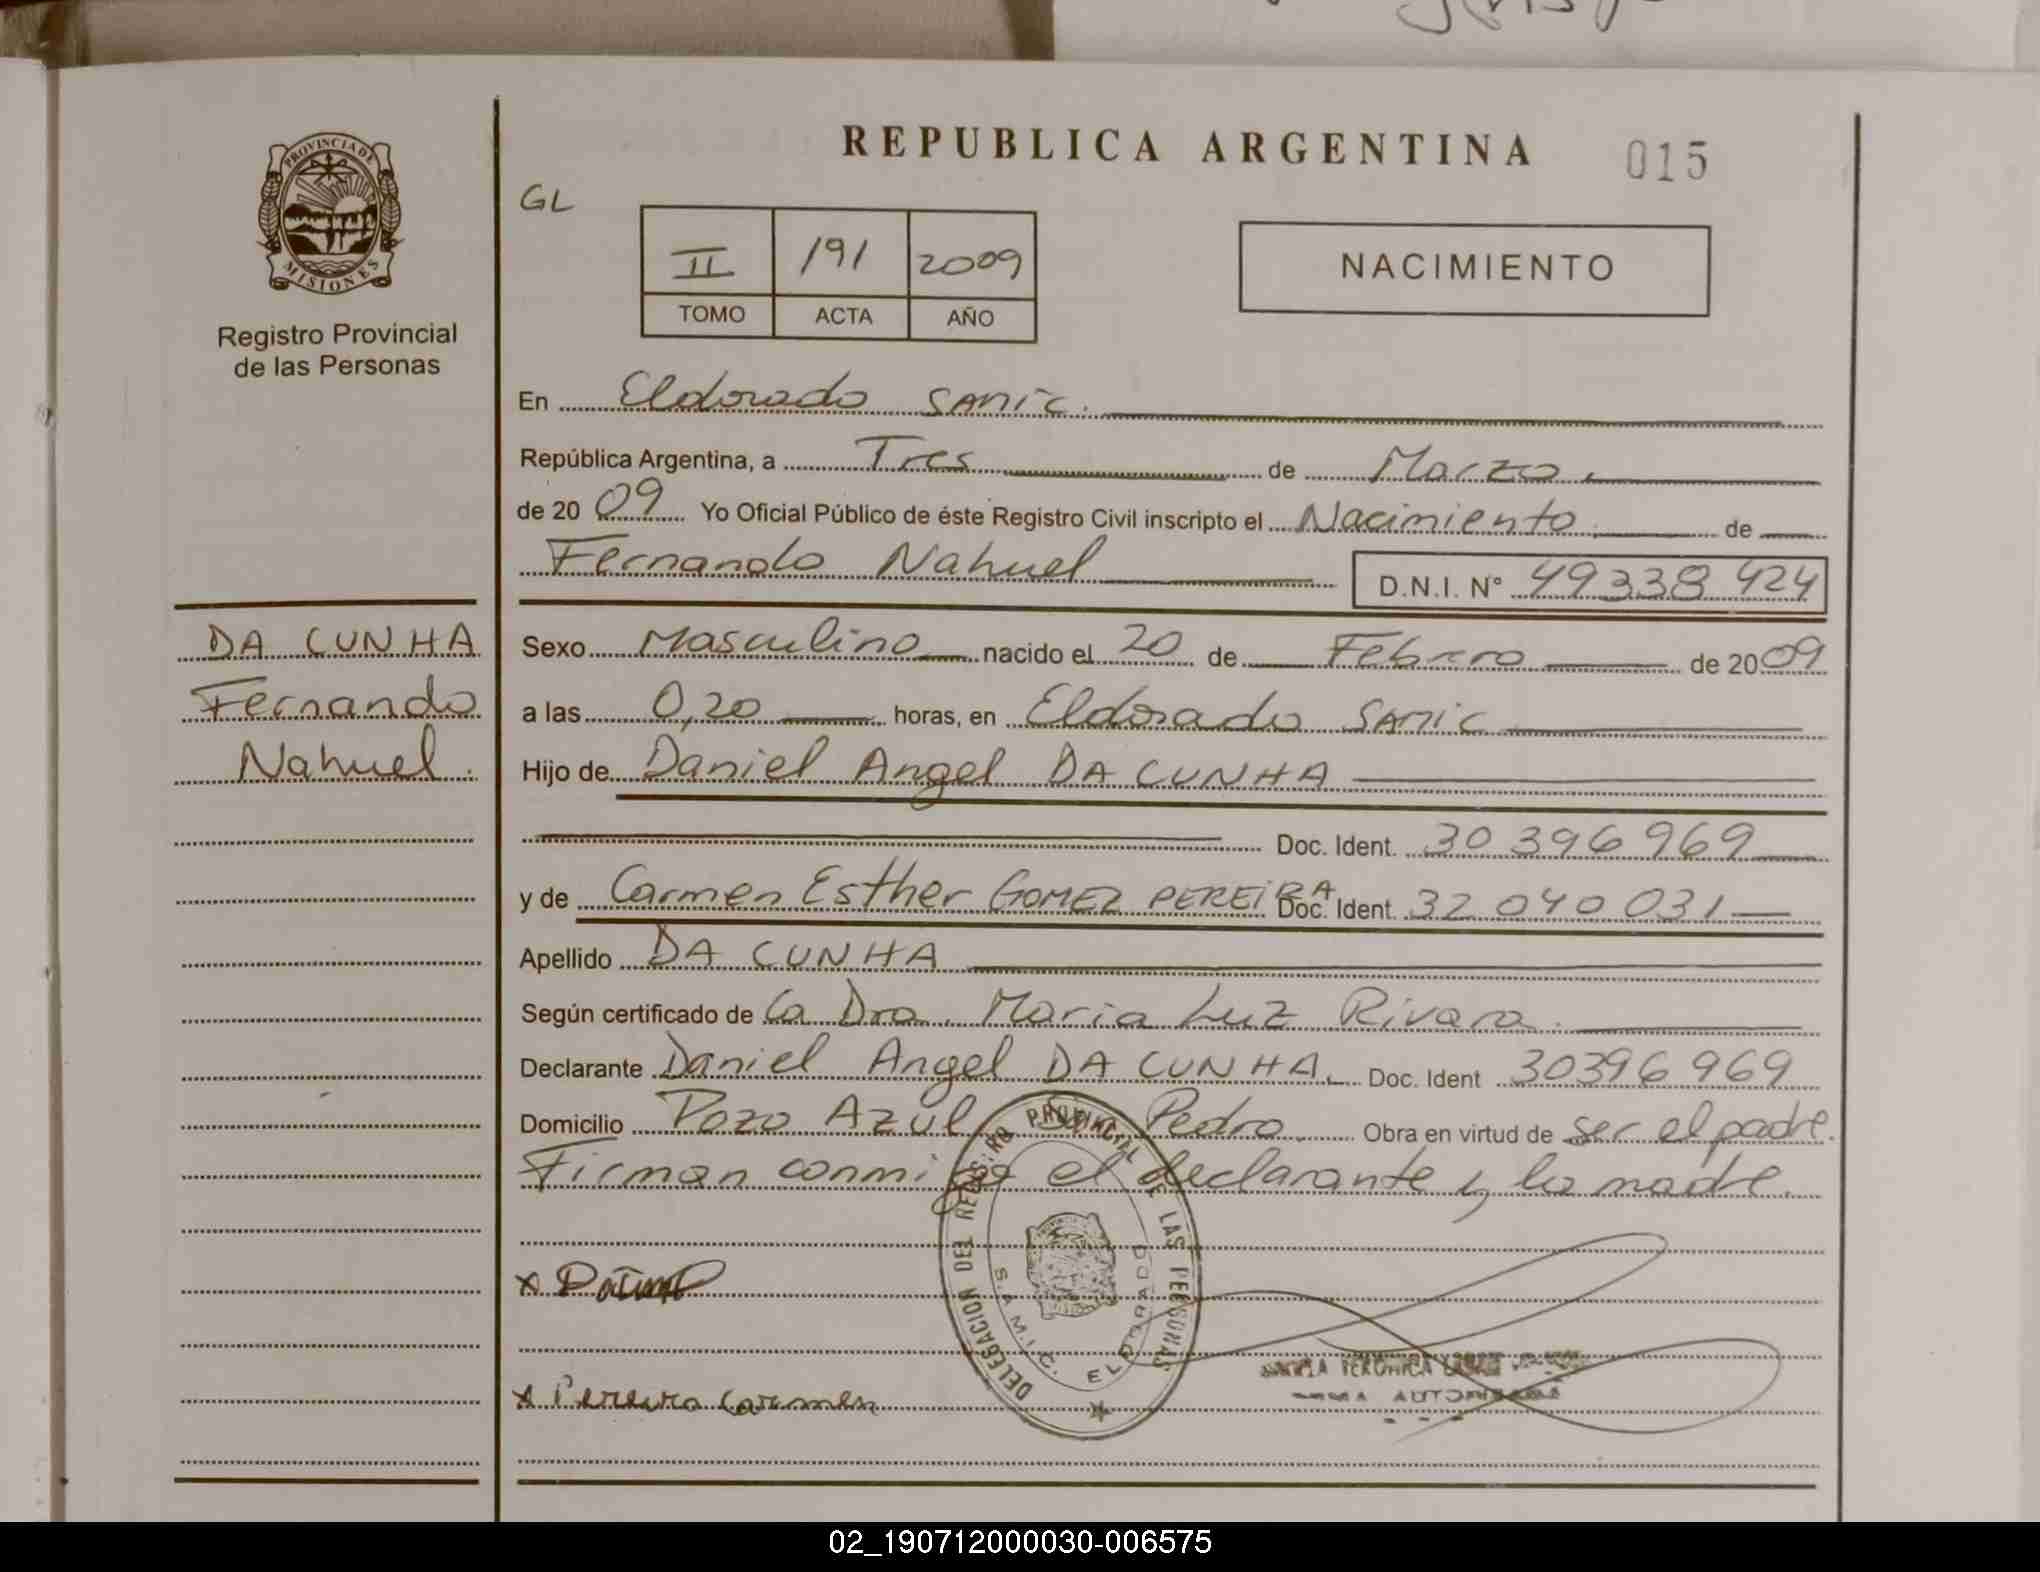 REPUBLICA ARGENTINA 015
PROVINCIA DE
MISIONES
Registro Provincial
de las Personas
GL
II 191 2009
TOMO ACTA AÑO
NACIMIENTO
En Eldorado SAMIC.
República Argentina, a Tres de Marzo
de 2009 Yo Oficial Público de éste Registro Civil inscripto el Nacimiento de
Fernando Nahuel D.N.I. N° 49338424
DA CUNHA
Fernando
Nahuel.
Sexo Masculino nacido el 20 de Febrero de 2009
a las 0,20 horas, en Eldorado SAMIC
Hijo de Daniel Angel DA CUNHA
Doc. Ident. 30 396 969
y de Carmen Esther GOMEZ PEREIRA Doc. Ident. 32 040 031
Apellido DA CUNHA
Según certificado de La Dra. Maria Luz Rivara.
Declarante Daniel Angel DA CUNHA. Doc. Ident 30396969
Domicilio Pozo Azul Pedro. Obra en virtud de ser el padre.
Firman conmigo el declarante y la madre.
DELEGACION DEL REGISTRO PROVINCIAL DE LAS PERSONAS
S.A.M.I.C. ELDORADO
x Pereira Carmen
VERONICA
02_190712000030-006575